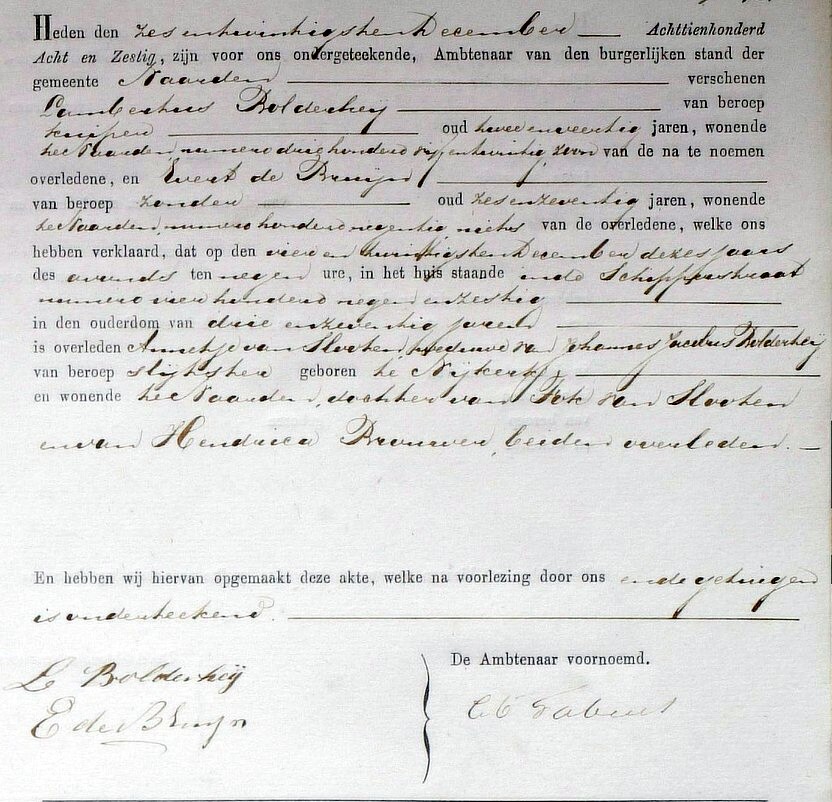 Heden den zesentwintigsten December Achttienhonderd
Acht en Zestig, zijn voor ons ondergeteekende, Ambtenaar van den burgerlijken stand der
gemeente Naarden verschenen
Lambertus Bolderheij van beroep
kuiper oud twee en veertig jaren, wonende
te Naarden, numero driehonderd vijfentwintig, zoon van de na te noemen
overledene, en Evert de Bruijn
van beroep zonder oud zesenzeventig jaren, wonende
te Naarden, numero honderd negentig niets van de overledene, welke ons
hebben verklaard, dat op den vier en twintigsten December dezes jaars
des avonds ten negen ure, in het huis staande in de Schippersstraat
numero vierhonderd negen en zestig
in den ouderdom van drie en zeventig jaren
is overleden Annetje van Slooten, weduwe van Johannes Jacobus Bolderheij
van beroep slijtster geboren te Nijkerk,
en wonende te Naarden, dochter van Fok van Slooten
en van Hendrica Brouwer, beiden overleden.
En hebben wij hiervan opgemaakt deze akte, welke na voorlezing door ons en de getuigen
is onderteekend.
De Ambtenaar voornoemd.
L Bolderheij
E de Bruijn